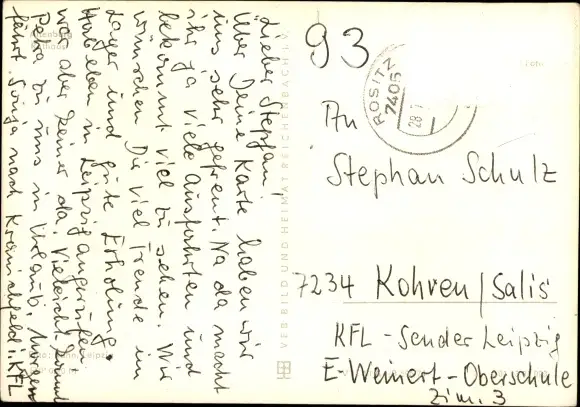 Lieber Stephan!
Über Deine Karte haben wir
uns sehr gefreut. Na da macht
ihr ja viele Ausfahrten und
bekommt viel zu sehen. Wir
wünschen Dir viel Freude im
Lager und gute Erholung.
Haben eben in Leipzig angerufen
war aber keiner da. Vielleicht kommt
Petra zu uns in Urlaub. Morgen
fährt Svinja nach Kranichfeld i. KFL
VEB BILD UND HEIMAT REICHENBACH I. V.
93
ROSITZ
7405
28.7
An
Stephan Schulz
7234 Kohren/Salis
KFL - Sender Leipzig
E-Weinert-Oberschule
Zim. 3